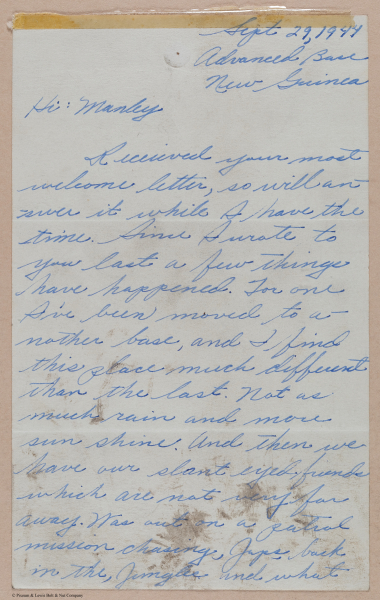 Sept 29, 1944
Advanced Base
New Guinea
Hi: Manley
Received your most
welcome letter, so will an-
swer it while I have the
time. Since I wrote to
you last a few things
have happened. For one
I've been moved to a-
nother base, and I find
this place much different
than the last. Not as
much rain and more
sun shine. And then we
have our slant eyed friends
which are not very far
away. Was out on a patrol
mission chasing Japs back
in the Jungle and what